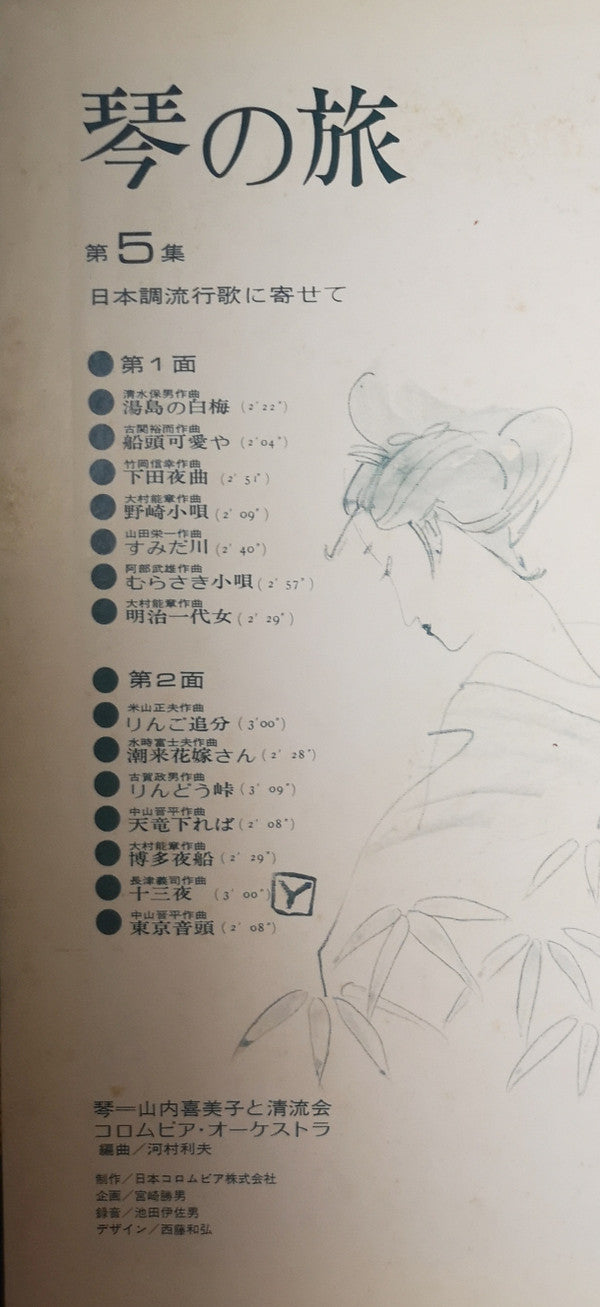 琴の旅
第5集
日本調流行歌に寄せて
第1面
清水保男作曲
湯島の白梅 (2'22")
古関裕而作曲
船頭可愛や (2'04")
竹岡信幸作曲
下田夜曲 (2'51")
大村能章作曲
野崎小唄 (2'09")
山田栄一作曲
すみだ川 (2'40")
阿部武雄作曲
むらさき小唄 (2'57")
大村能章作曲
明治一代女 (2'29")
第2面
米山正夫作曲
りんご追分 (3'00")
水時富士夫作曲
潮来花嫁さん (2'28")
古賀政男作曲
りんどう峠 (3'09")
中山晋平作曲
天竜下れば (2'08")
大村能章作曲
博多夜船 (2'29")
長津義司作曲
十三夜 (3'00")
Y
中山晋平作曲
東京音頭 (2'08")
琴=山内喜美子と清流会
コロムビア・オーケストラ
編曲/河村利夫
制作/日本コロムビア株式会社
企画/宮崎勝男
録音/池田伊佐男
デザイン/西藤和弘